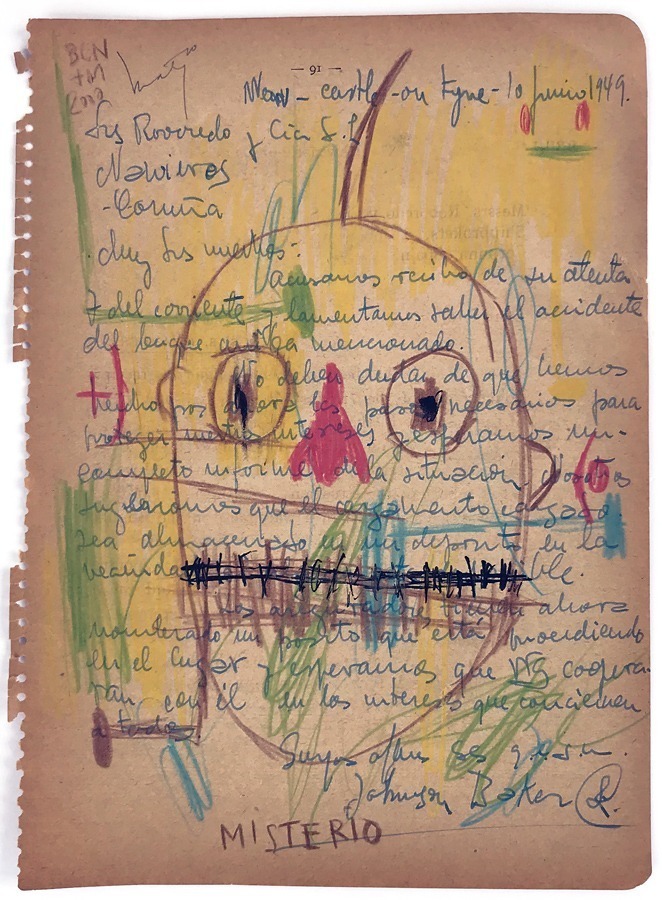 BCN
- 91 -
New-castle-on Tyne - 10 junio 1949.
Srs Rovoredo y Cía S. L
Navieros
- Coruña
Muy Srs nuestros:-
Acusamos recibo de su atenta
7 del corriente y lamentamos saber el accidente
del buque arriba mencionado.
No deben dudar de que hemos
hecho los pasos necesarios para
proteger intereses y esperamos un
completo informe de la situación. Nosotros
que el cargamento cargado
sea almacenado en un deposito en la
Los tienen ahora
nombrado un perito que está procediendo
en el lugar y esperamos que VVs coopera-
ran con él en los intereses que conciernen
a todos.
Suyos affms ss q.e.s.m.
Johnson Baker
MISTERIO